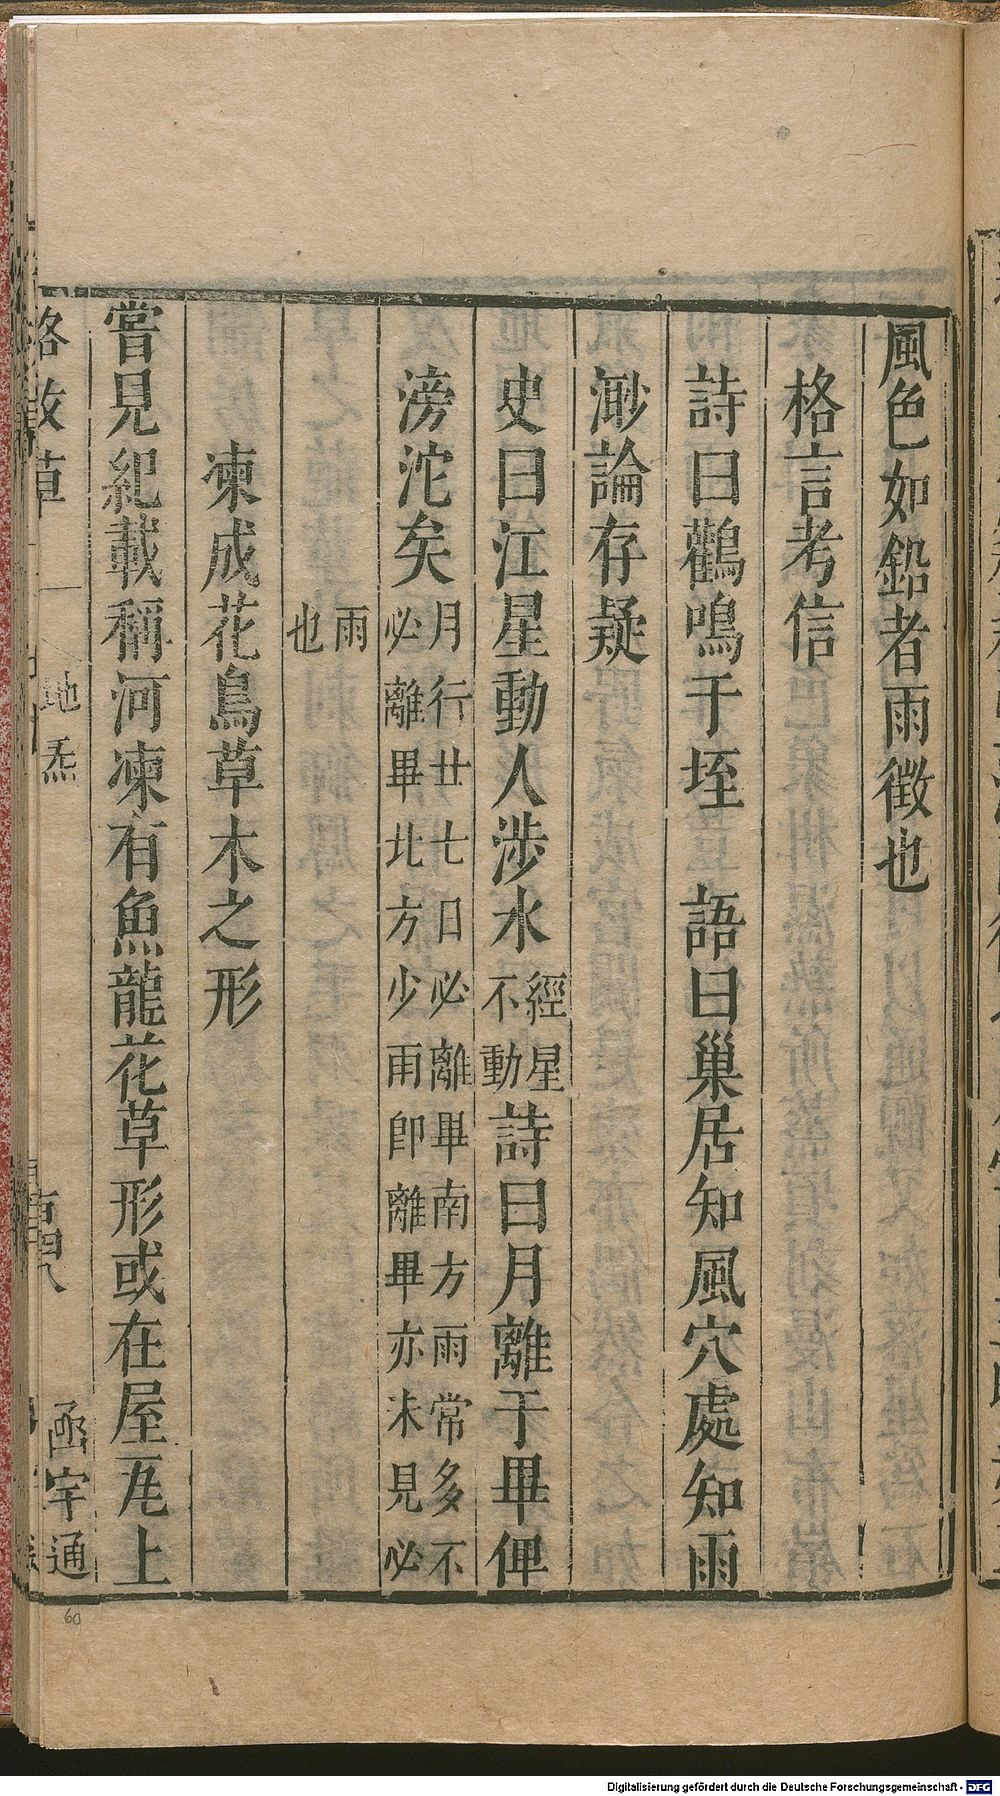 風色如鉛者雨徵也
格言考信
詩曰鸛鳴于垤　語曰巢居知風穴處知雨
渺論存疑
史曰江星動人涉水經星不動詩曰月離于畢俾
滂沱矣月行廿七日必離畢南方雨常多不
必離畢北方少雨卽離畢亦未見必
雨
也
凍成花鳥草木之形
嘗見紀載稱河凍有魚龍花草形或在屋瓦上
格致草
地炁
百四八
函宇通
60
Digitalisierung gefördert durch die Deutsche Forschungsgemeinschaft - DFG